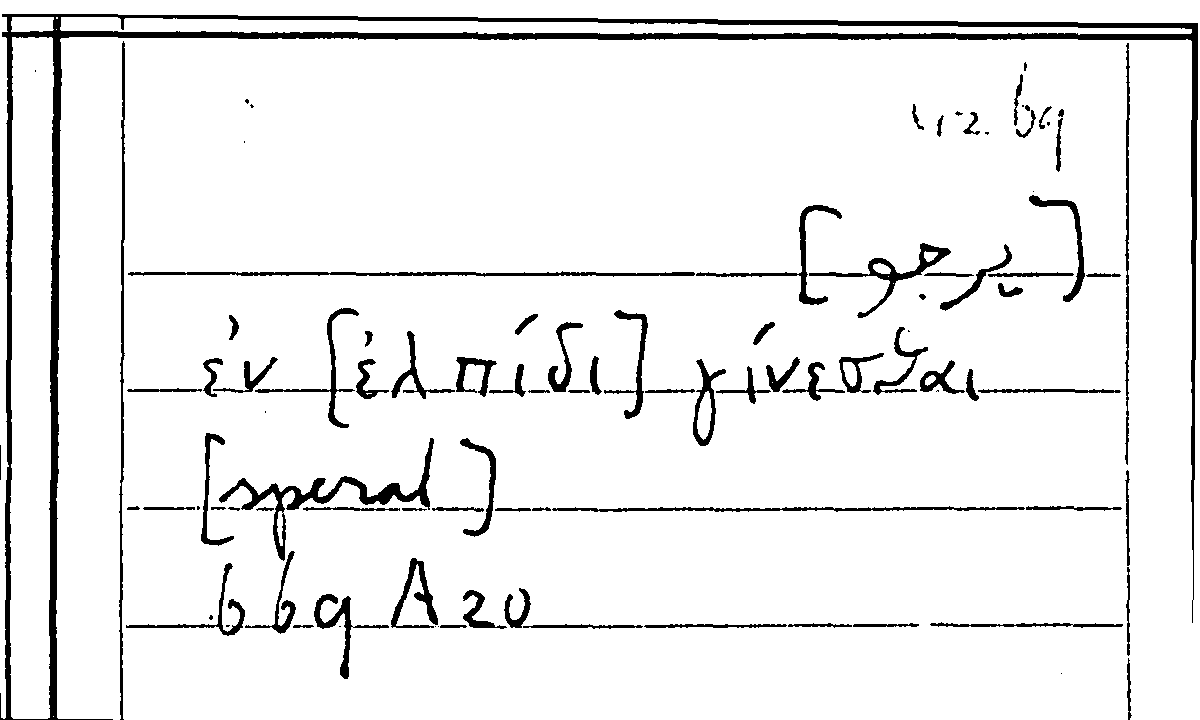 [يرجو]
ἐν [ἐλπίδι] γίνεσθαι
[sperat]
66q A 20